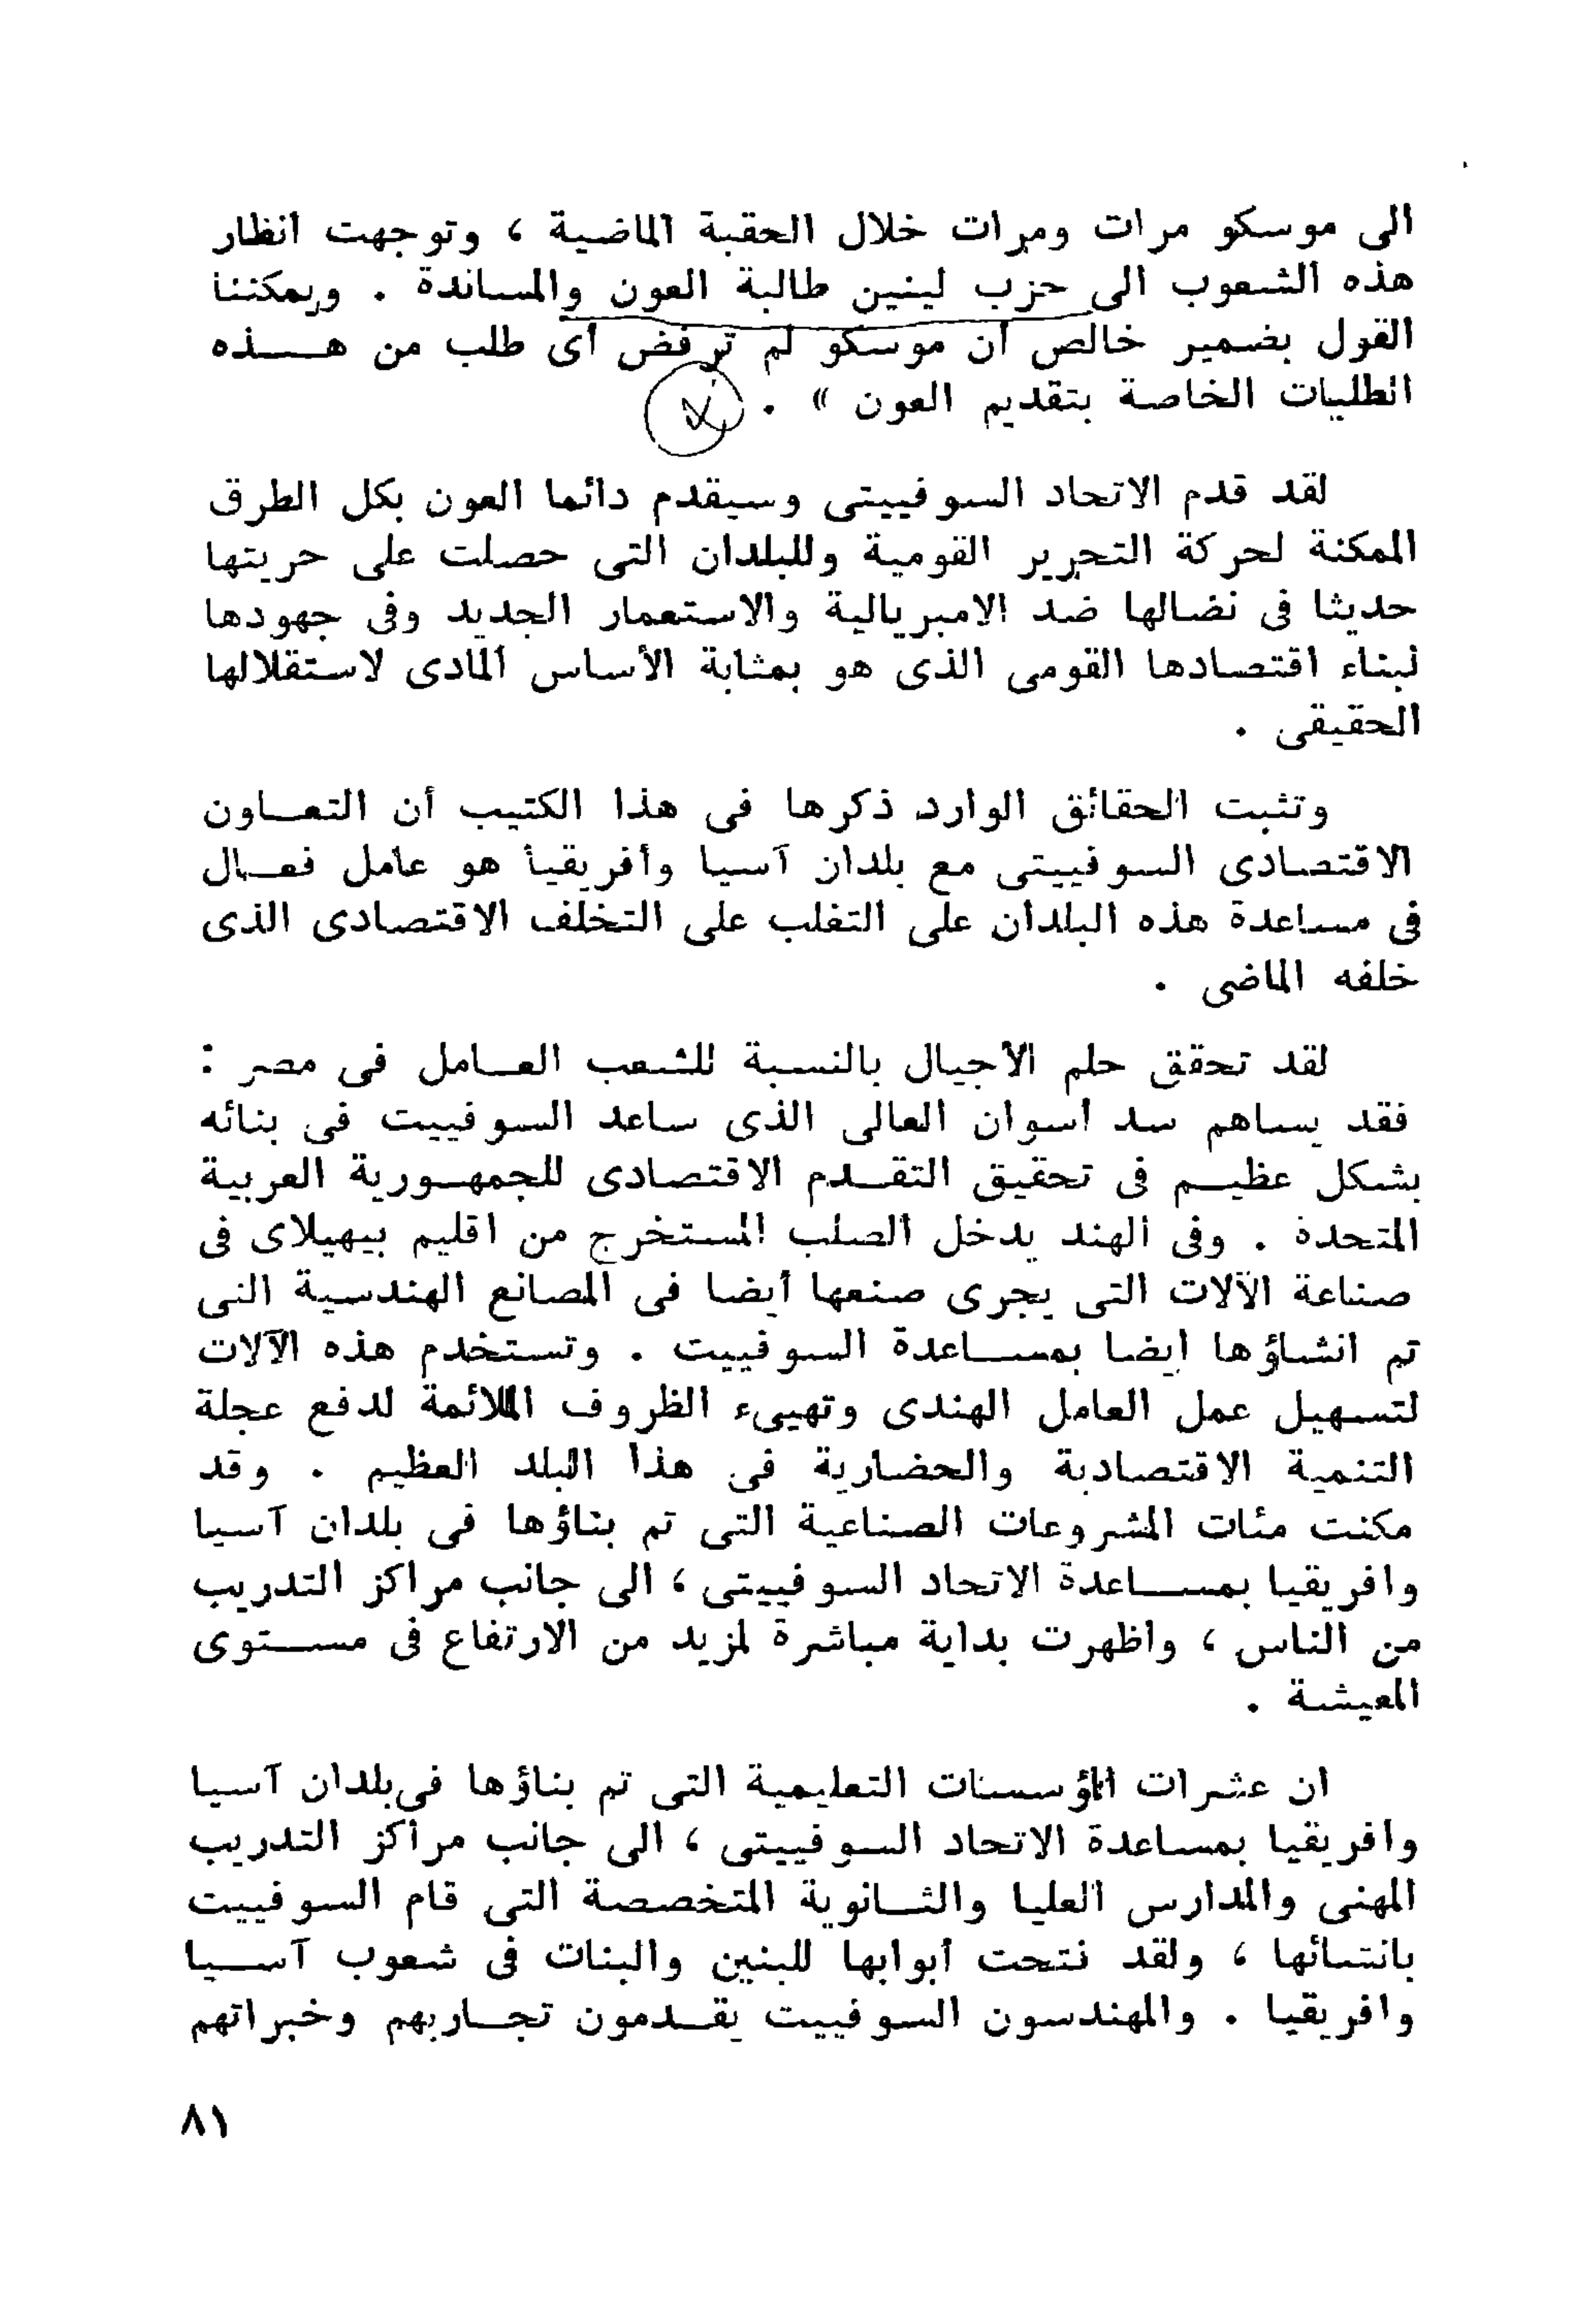 الى موسكو مرات ومرات خلال الحقبة الماضية ، وتوجهت أنظار
هذه الشعوب الى حزب لينين طالبة العون والمساندة . ويمكننا
القول بضمير خالص أن موسكو لم ترفض أى طلب من هـــذه
الطلبات الخاصة بتقديم العون » .
لقد قدم الاتحاد السوفييتى وسيقدم دائما العون بكل الطرق
الممكنة لحركة التحرير القومية وللبلدان التى حصلت على حريتها
حديثا فى نضالها ضد الامبريالية والاستعمار الجديد وفى جهودها
لبناء اقتصادها القومى الذى هو بمثابة الأساس المادى لاستقلالها
الحقيقى .
وتثبت الحقائق الوارد ذكرها فى هذا الكتيب أن التعـاون
الاقتصادى السوفييتى مع بلدان آسيا وأفريقيا هو عامل فعـال
فى مساعدة هذه البلدان على التغلب على التخلف الاقتصادى الذى
خلفه الماضى .
لقد تحقق حلم الأجيال بالنسبة للشعب العـامل فى مصر :
فقد يساهم سد أسوان العالى الذى ساعد السوفييت فى بنائه
بشكل عظيـم فى تحقيق التقـدم الاقتصادى للجمهـورية العربية
المتحدة . وفى الهند يدخل الصلب المستخرج من اقليم بيهيلاى فى
صناعة الآلات التى يجرى صنعها أيضا فى المصانع الهندسية التى
تم انشاؤها أيضا بمسـاعدة السوفييت . وتستخدم هذه الآلات
لتسهيل عمل العامل الهندى وتهيىء الظروف الملائمة لدفع عجلة
التنمية الاقتصادية والحضارية فى هذا البلد العظيم . وقد
مكنت مئات المشروعات الصناعية التى تم بناؤها فى بلدان آسيا
وافريقيا بمسـاعدة الاتحاد السوفييتى ، الى جانب مراكز التدريب
من الناس ، واظهرت بداية مباشرة لمزيد من الارتفاع فى مسـتوى
المعيشة .
ان عشرات المؤسسات التعليمية التى تم بناؤها فى بلدان آسيا
وافريقيا بمساعدة الاتحاد السوفييتى ، الى جانب مراكز التدريب
المهنى والمدارس العليا والثـانوية المتخصصة التى قام السوفييت
بانشائها ، ولقد فتحت أبوابها للبنين والبنات فى شعوب آسـيا
وافريقيا . والمهندسون السوفييت يقـدمون تجـاربهم وخبراتهم
٨١